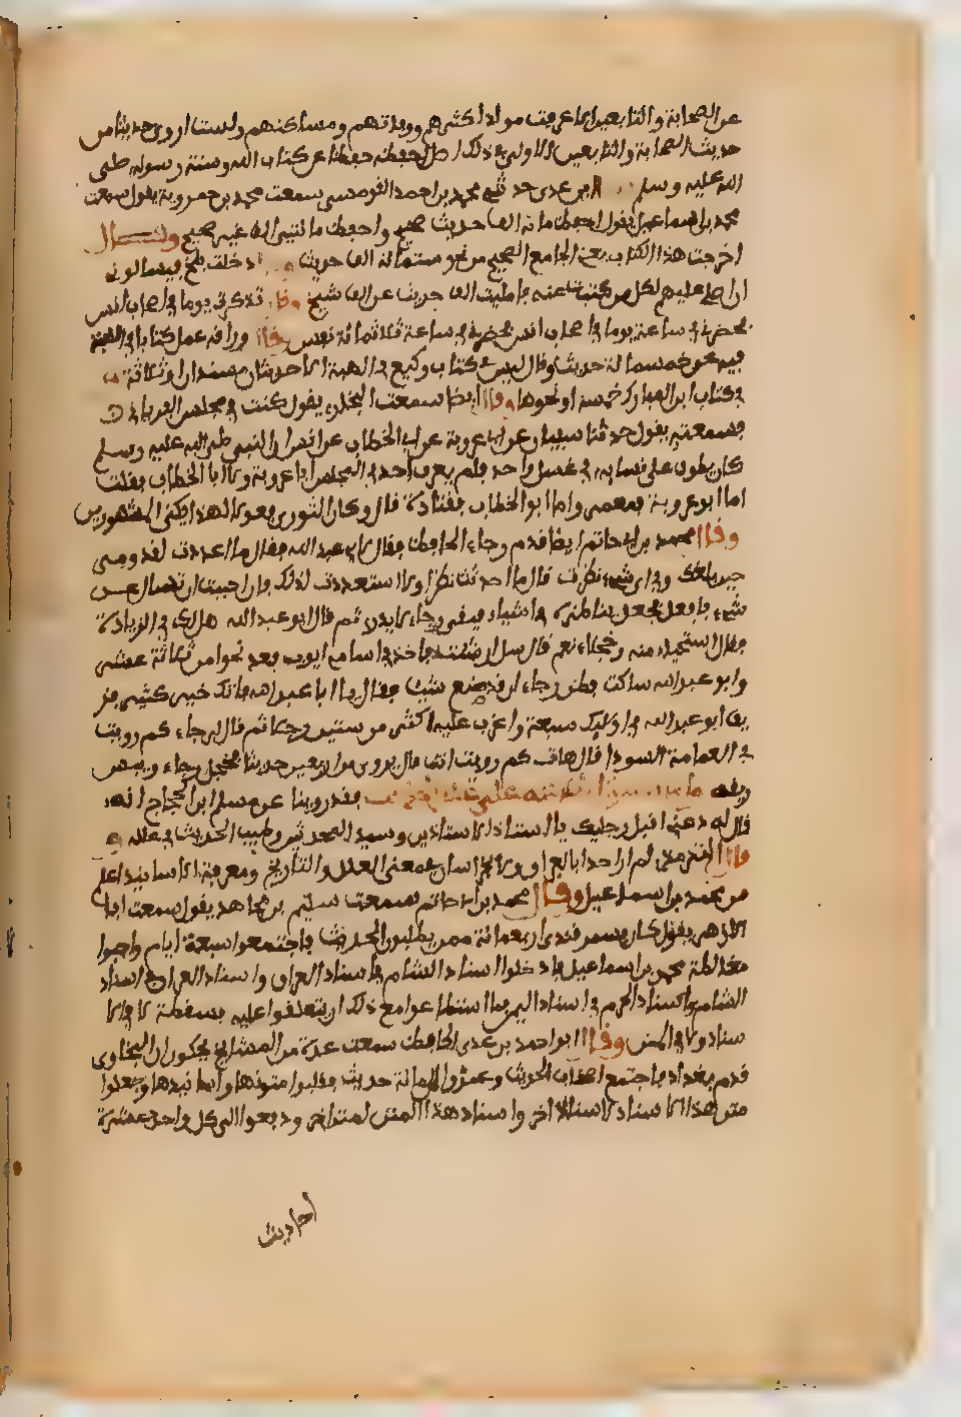 عن الصحابة والتابعين الا عرفت مولد اكثرهم ووفاتهم ومساكنهم ولست اروي حديثا من
حديث الصحابة والتابعين الا ولي في ذلك اصل احفظه حفظا عن كتاب الله وسنة رسوله صلى
الله عليه وسلم ابن عدي حدثني محمد بن احمد القومسي سمعت محمد بن حمروية يقول سمعت
محمد بن اسماعيل يقول احفظ مائة الف حديث صحيح واحفظ مائتي الف غير صحيح وقال
اخرجت هذا الكتاب يعني الجامع الصحيح من نحو ستمائة الف حديث دخلت بلخ فيسالوني
ان املي عليهم لكل من كتبت عنه فامليت الف حديث عن الف شيخ وقال تذكرت يوما في اصحاب انس
فحضرني في ساعة ثلاثمائة نفس وقال وراقه عمل كتابا في الهبة
فيه نحو خمسمائة حديث وقال ليس في كتاب وكيع في الهبة الا حديثان مسندان او ثلاثة
في كتاب ابن المبارك خمسة او نحوها وقال ايضا سمعت البخاري يقول كنت في مجلس الفريابي
فسمعته يقول حدثنا سفيان عن ابي عروبة عن ابي الخطاب عن انس ان النبي صلى الله عليه وسلم
كان يطوف على نسايه في غسل واحد فلم يعرف احد في المجلس ابا عروبة ولا ابا الخطاب فقلت
اما ابو عروبة فمعمر واما ابو الخطاب فقتادة قال وكان الثوري فعولا لهذا يكني المشهورين
وقال محمد بن ابي حاتم ايضا قدم رجاء الحافظ فقال لابي عبد الله فقال ما اعددت لقدومي
حين بلغك وفي اي شيء نظرت قال ما احدثت نظرا ولا استعددت لذلك فان احببت ان تسال عن
شيء فافعل فجعل يناظره في اشياء فبقي رجاء لا يدري ثم قال ابو عبد الله هل لك في الزيادة
فقال استحياء منه وخجلا نعم قال سل ان شئت فاخذ في اسامي ايوب فعد نحوا من ثلاثة عشر
وابو عبد الله ساكت فظن رجاء ان قد صنع شيئا فقال يا ابا عبد الله فاتك خير كثير فز
يف ابو عبد الله في اولئك سبعة واغرب عليه اكثر من ستين رجلا ثم قال لرجاء كم رويت
في العمامة السودا قال هات كم رويت انت قال يروى من اربعين حديثا فخجل رجاء ويبس
ريقه فقد روينا عن مسلم ابن الحجاج انه
قال له دعني اقبل رجليك يا استاذ الاستاذين وسيد المحدثين وطبيب الحديث في علله
قال الترمذي لم ار احدا بالعراق ولا بخراسان في معنى العلل والتاريخ ومعرفة الاسانيد اعلم
من محمد بن اسماعيل وقال محمد بن ابي حاتم سمعت سليم بن مجاهد يقول سمعت ابا
الازهر يقول كان بسمرقند اربعمائة ممن يطلبون الحديث فاجتمعوا سبعة ايام واحبوا
مغالطة محمد بن اسماعيل فادخلوا اسناد الشام في اسناد العراق واسناد العراق في اسناد
الشام واسناد الحرم في اسناد اليمن فما استطاعوا مع ذلك ان يتعلقوا عليه بسقطة لا في الا
سناد ولا في المتن وقال ابو احمد بن عدي الحافظ سمعت عدة من المشايخ يحكون ان البخاري
قدم بغداد فاجتمع اصحاب الحديث وعمدوا الى مائة حديث فقلبوا متونها واسانيدها وجعلوا
متن هذا الاسناد لاسناد اخر واسناد هذا المتن لمتن اخر ودفعوا الى كل واحد عشرة
احاديث